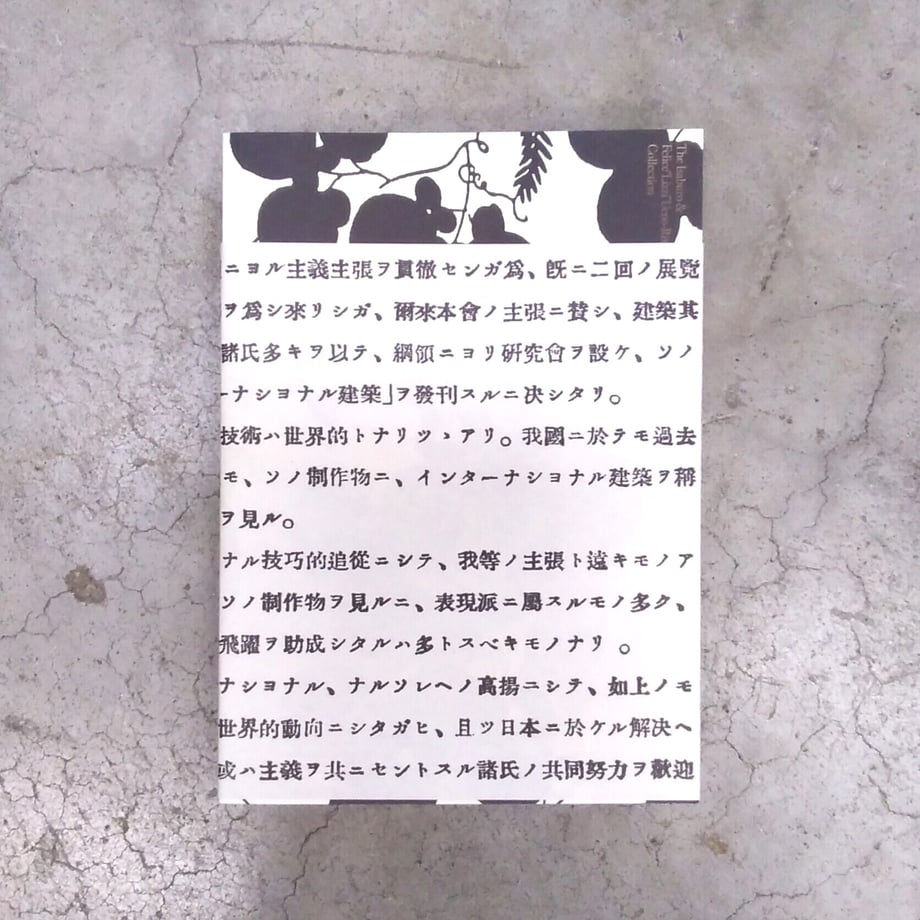 The Isaburo &
Felice "Lizzi" Ueno-Rix
Collection
ニヨル主義主張ヲ貫徹センガ爲、旣ニ二回ノ展覽
ヲ爲シ來リシガ、爾來本會ノ主張ニ賛シ、建築其
諸氏多キヲ以テ、綱領ニヨリ硏究會ヲ設ケ、ソノ
ーナショナル建築」ヲ發刊スルニ決シタリ。
技術ハ世界的トナリツヽアリ。我國ニ於テモ過去
モ、ソノ制作物ニ、インターナショナル建築ヲ稱
ヲ見ル。
ナル技巧的追從ニシテ、我等ノ主張ト遠キモノア
ソノ制作物ヲ見ルニ、表現派ニ屬スルモノ多ク、
飛躍ヲ助成シタルハ多トスベキモノナリ。
ナショナル、ナルソレヘノ高揚ニシテ、如上ノモ
世界的動向ニシタガヒ、且ツ日本ニ於ケル解決ヘ
或ハ主義ヲ共ニセントスル諸氏ノ共同努力ヲ歡迎